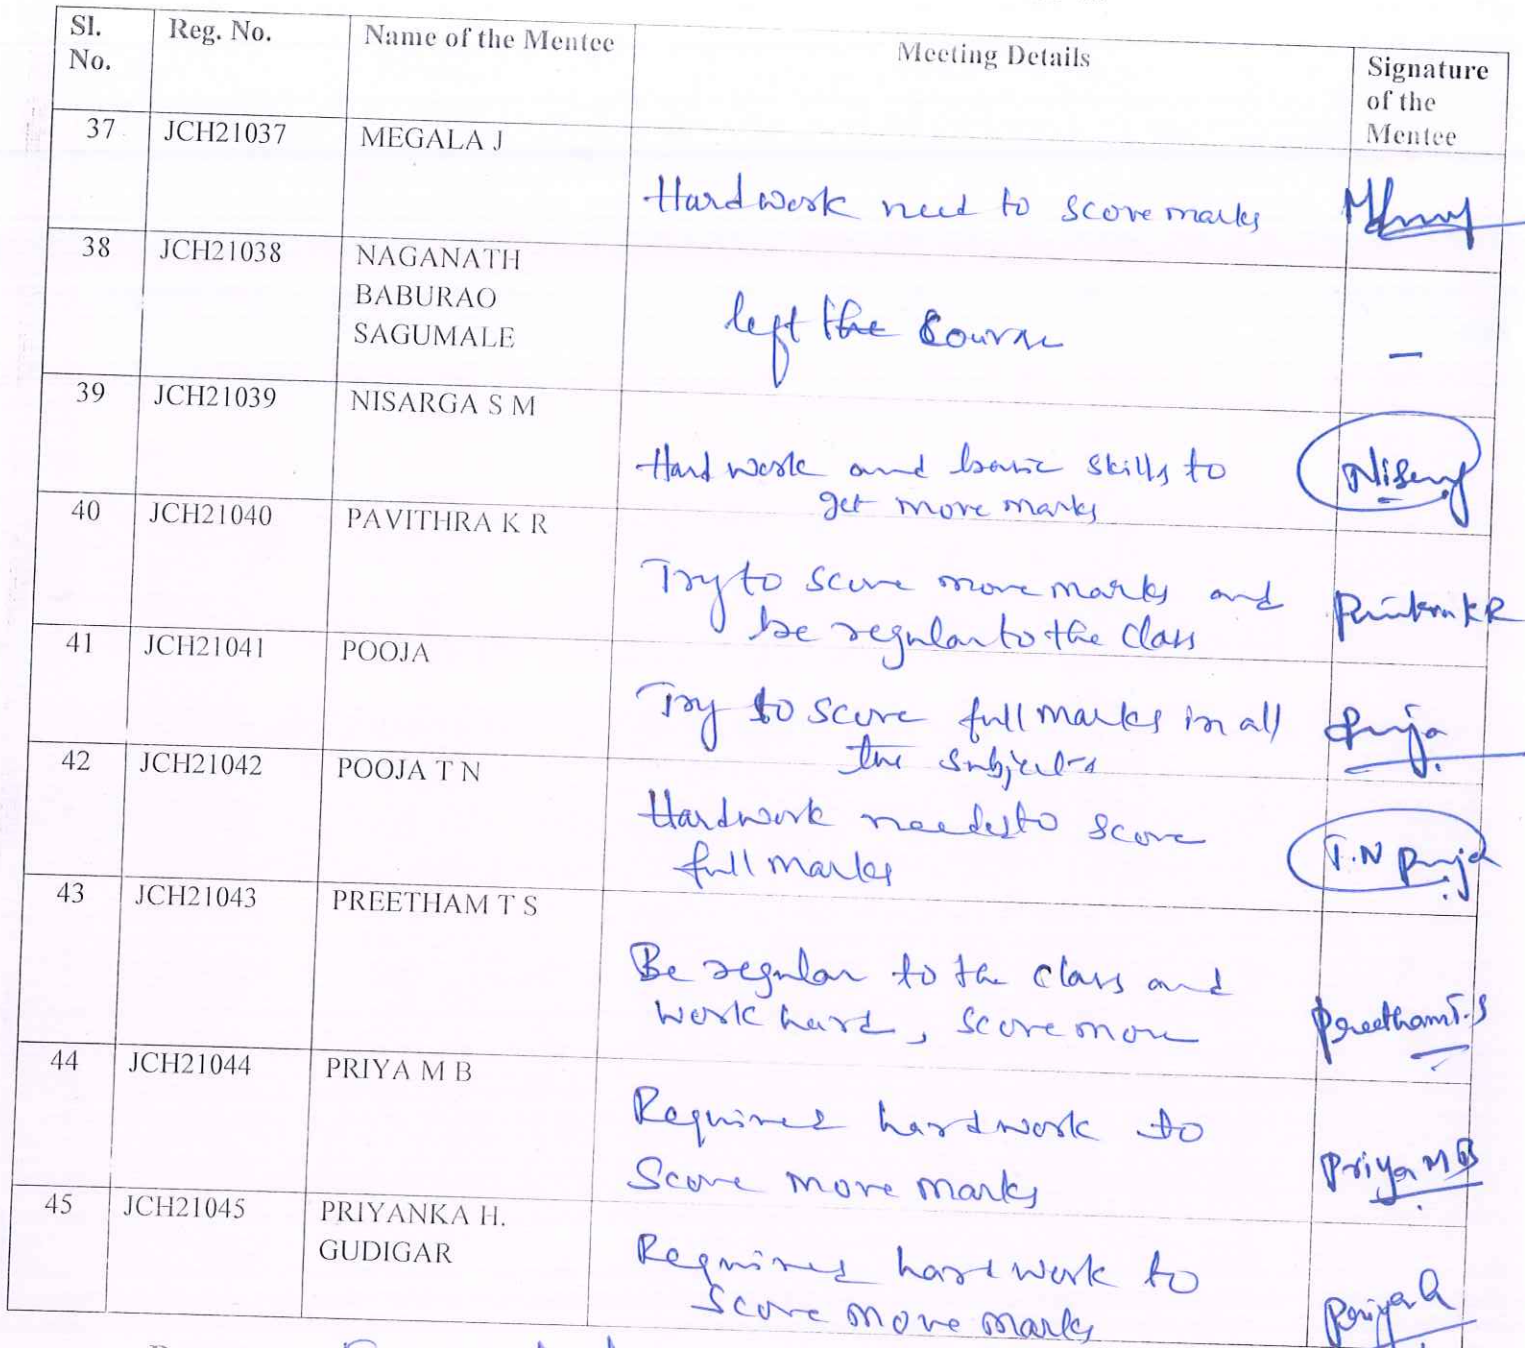 Sl. No. Reg. No. Name of the Mentee Meeting Details Signature of the Mentee
37 JCH21037 MEGALA J
Hardwork need to score marks
38 JCH21038 NAGANATH BABURAO SAGUMALE
left the course
–
39 JCH21039 NISARGA S M
Hard work and basic skills to
get more marks
40 JCH21040 PAVITHRA K R
Try to score more marks and
be regular to the class
41 JCH21041 POOJA
Try to score full marks in all
the subjects
42 JCH21042 POOJA T N
Hardwork needs to score
full marks
T.N Pooja
43 JCH21043 PREETHAM T S
Be regular to the class and
work hard, score more
Preetham T.S
44 JCH21044 PRIYA M B
Requires hardwork to
Score more marks
Priya M B
45 JCH21045 PRIYANKA H. GUDIGAR
Requires hard work to
Score more marks